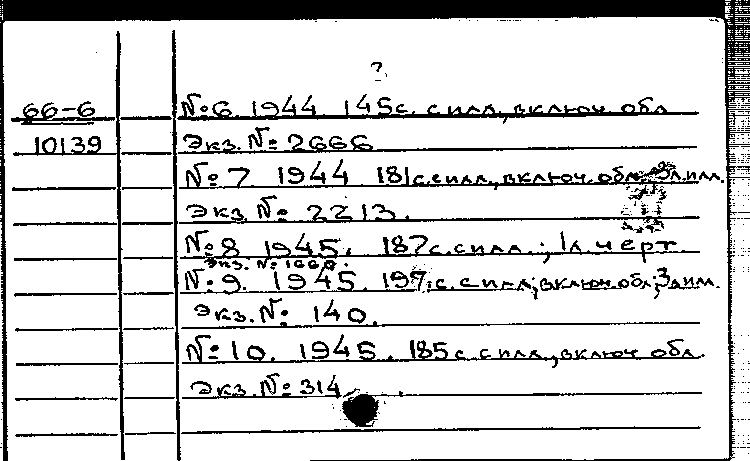 ?
66-6 №6 1944 145с. с илл., включ обл
10139 Экз. №2666
№7 1944 181с. с илл., включ. обл. 3л. илл.
Экз. №2213.
№8 1945. 187с. с илл.; 1л. черт.
Экз. №1666.
№9. 1945. 197. с. с илл; включ. обл; 3л им.
Экз. №140.
№10. 1945. 185с. с илл., включ обл.
Экз. №314